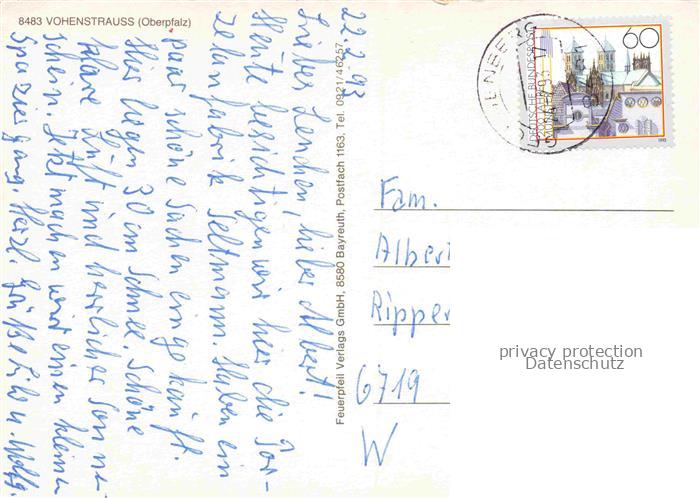 8483 VOHENSTRAUSS (Oberpfalz)
22.2.93
Liebes Lenchen, lieber Albert!
Heute besichtigen wir hier die Por-
zelanfabrik Seltmann. Haben ein
paar schöne Sachen eingekauft.
Hier liegen 30 cm Schnee. Schöne
klare Luft und herrlicher Sonne-
schein. Jetzt machen wir einen kleinen
Spaziergang. Herzl. Grüße u. Wolfg.
Feuerpfeil Verlags GmbH, 8580 Bayreuth, Postfach 1163, Tel. 0921/46257
DEUTSCHE BUNDESPOST
60
1993
Fam.
Alber
Ripper
6719
W
privacy protection
Datenschutz